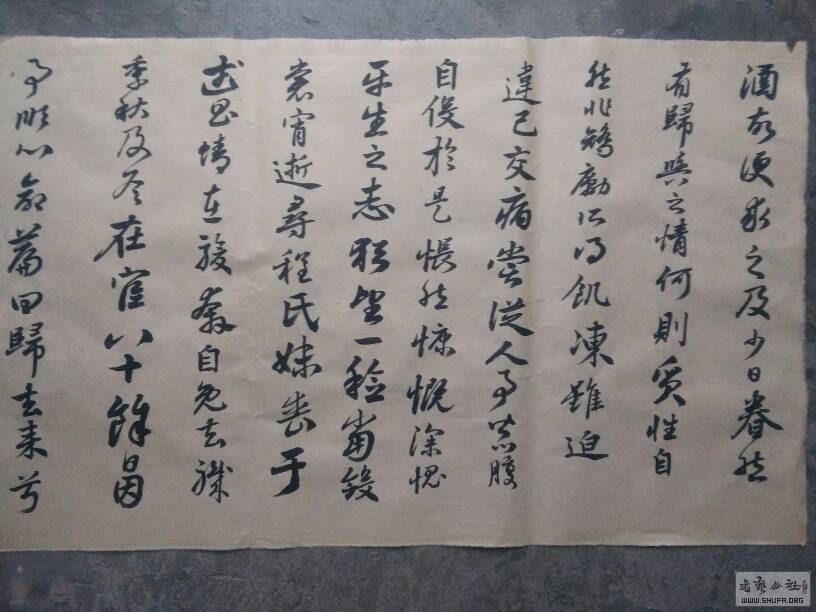 酒故便求之及少日眷然
有歸與之情何則質性自
然非矯勵所得飢凍雖迫
違己交病嘗從人事皆口腹
自役於是悵然慷慨深愧
平生之志猶望一稔當斂
裳宵逝尋程氏妹喪于
武昌情在駿奔自免去職
季秋及冬在官八十餘日因
事順心命篇曰歸去来兮
書藝公社
WWW.SHUFA.ORG